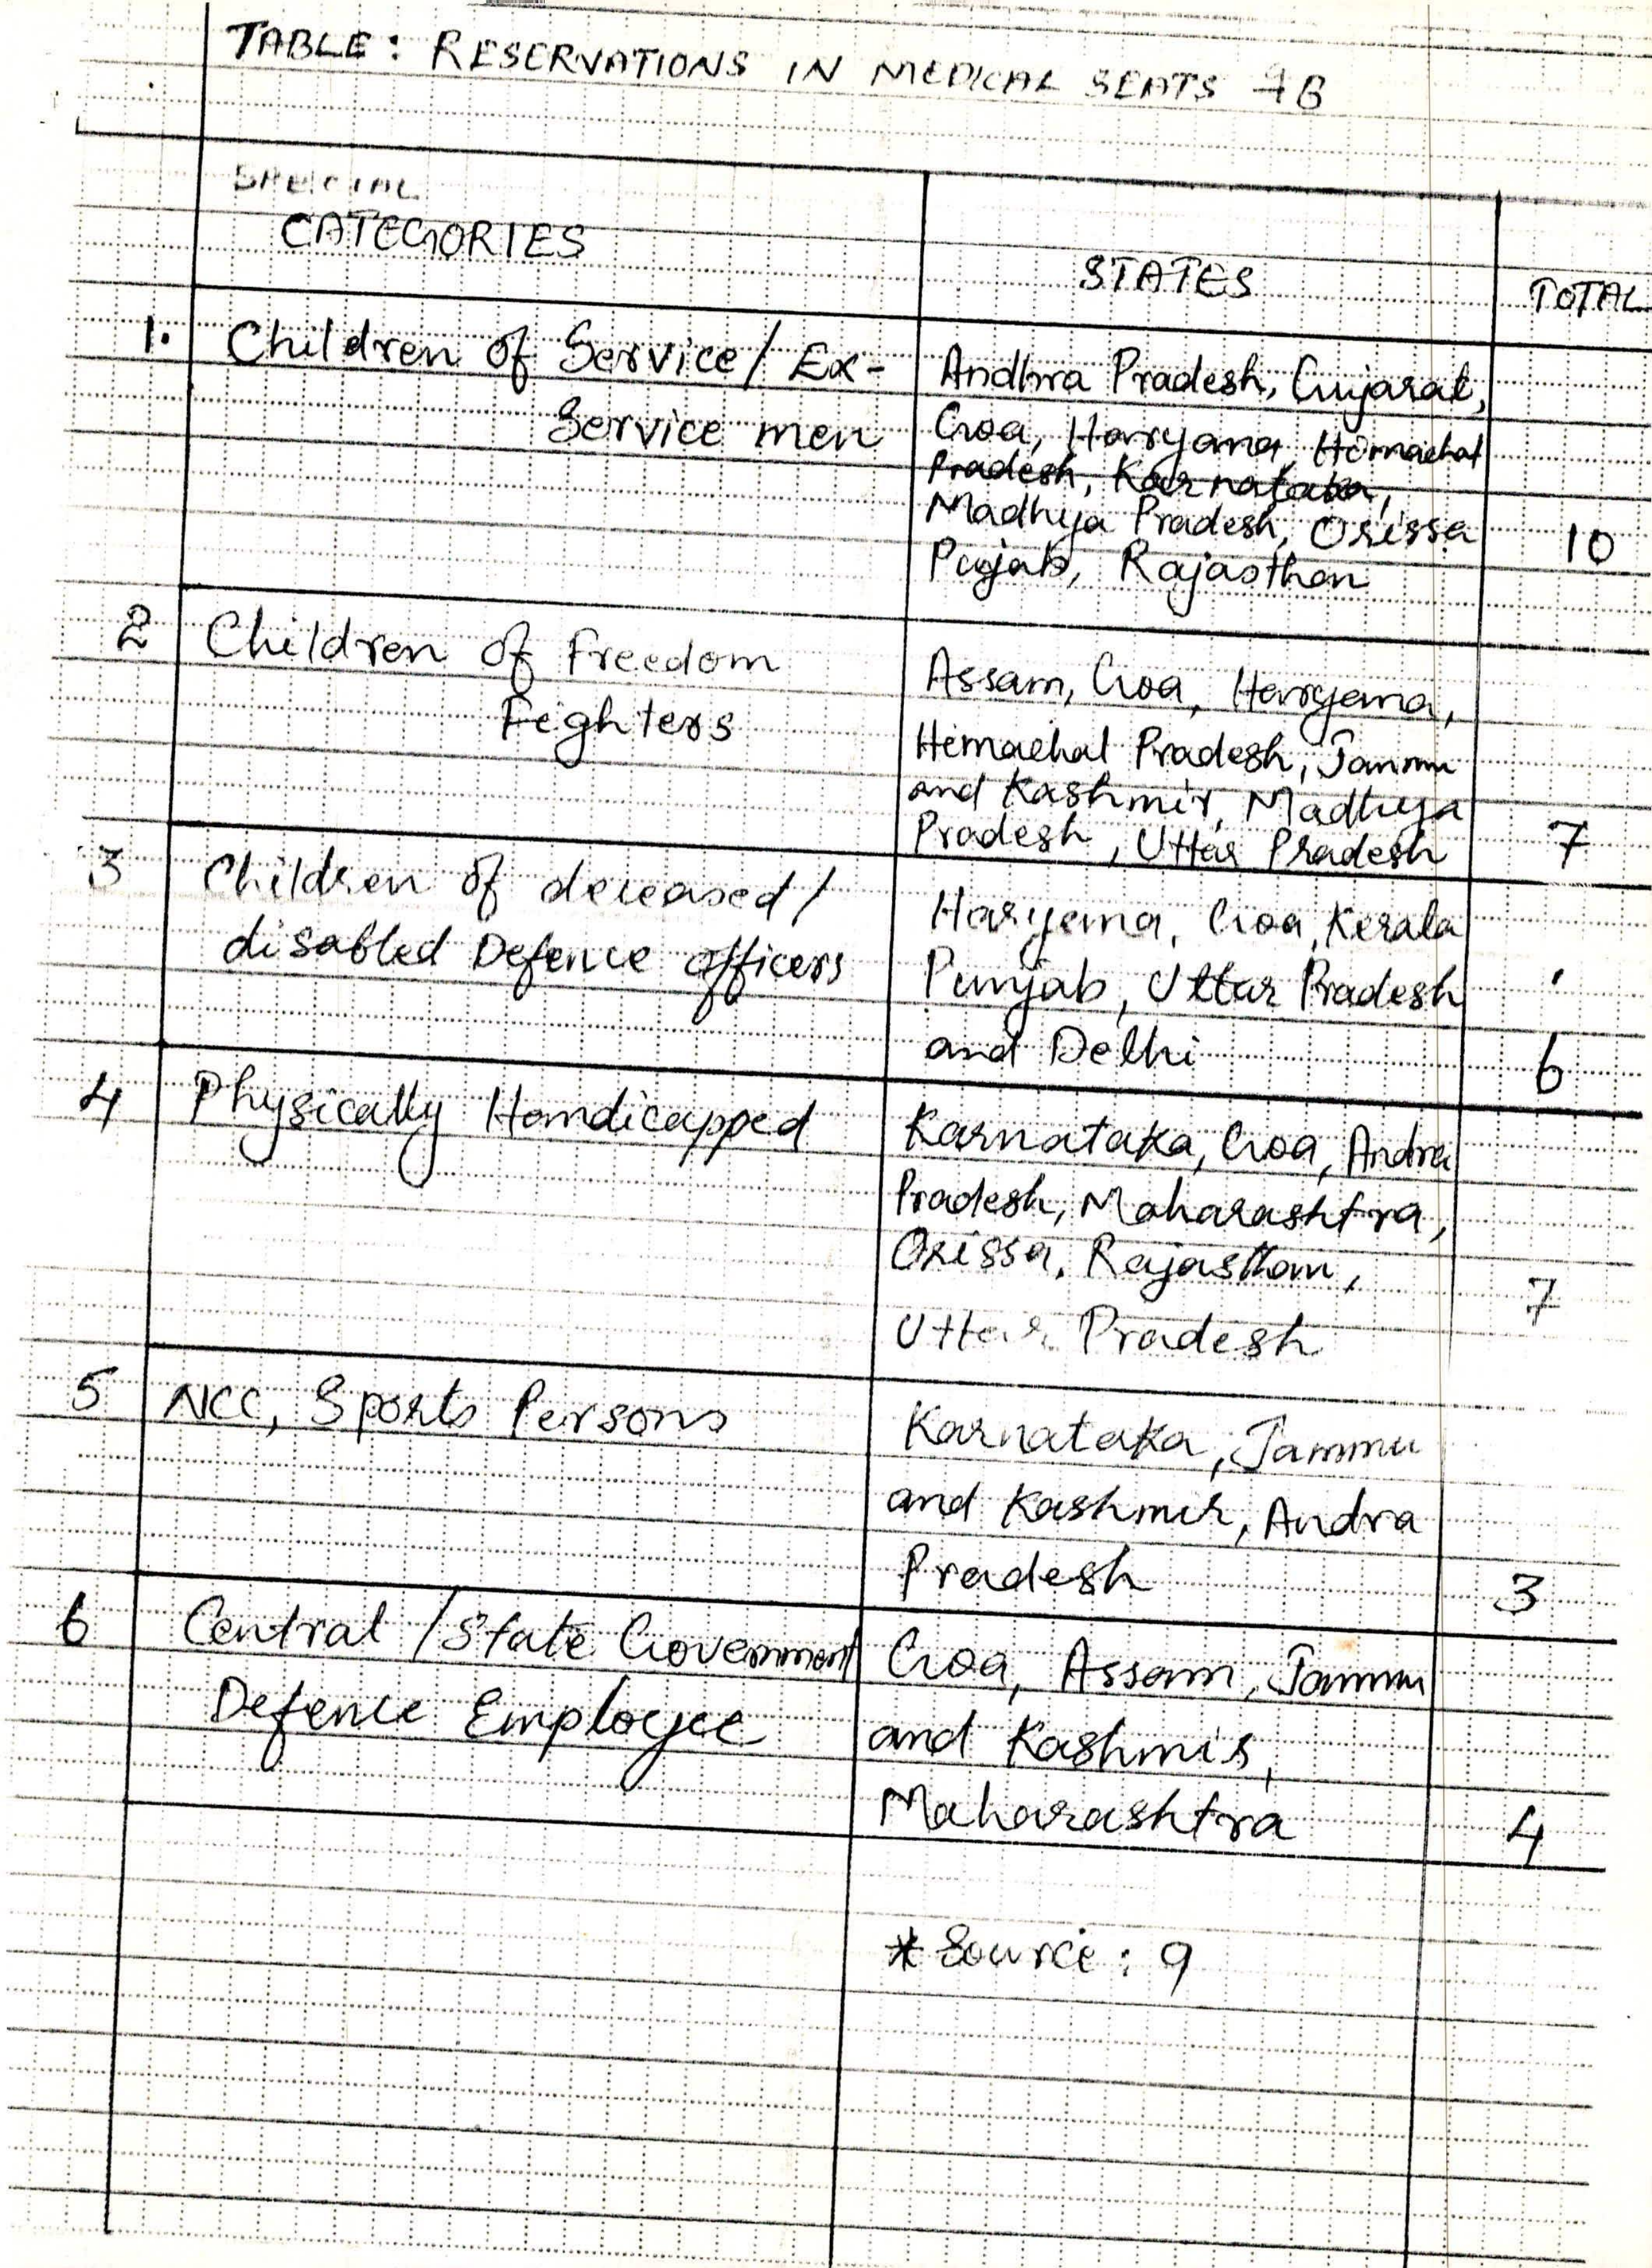 TABLE: RESERVATIONS IN MEDICAL SEATS 7B
SPECIAL
CATEGORIES
STATES
TOTAL
1. Children of Service/Ex-
Service men
Andhra Pradesh, Gujarat,
Goa, Haryana, Himachal
Pradesh, Karnataka,
Madhya Pradesh, Orissa
Pujab, Rajasthan
10
2 Children of Freedom
Fighters
Assam, Goa, Haryana,
Himachal Pradesh, Jammu
and Kashmir, Madhya
Pradesh, Uttar Pradesh
7
3 Children of deceased/
disabled Defence officers
Haryana, Goa, Kerala
Punjab, Uttar Pradesh
and Delhi
6
4 Physically Handicapped
Karnataka, Goa, Andra
Pradesh, Maharashtra,
Orissa, Rajasthan,
Uttar Pradesh
7
5 NCC, Sports Persons
Karnataka, Jammu
and Kashmir, Andra
Pradesh
3
6 Central/State Government
Defence Employee
Goa, Assam, Jammu
and Kashmir,
Maharashtra
4
* Source: 9